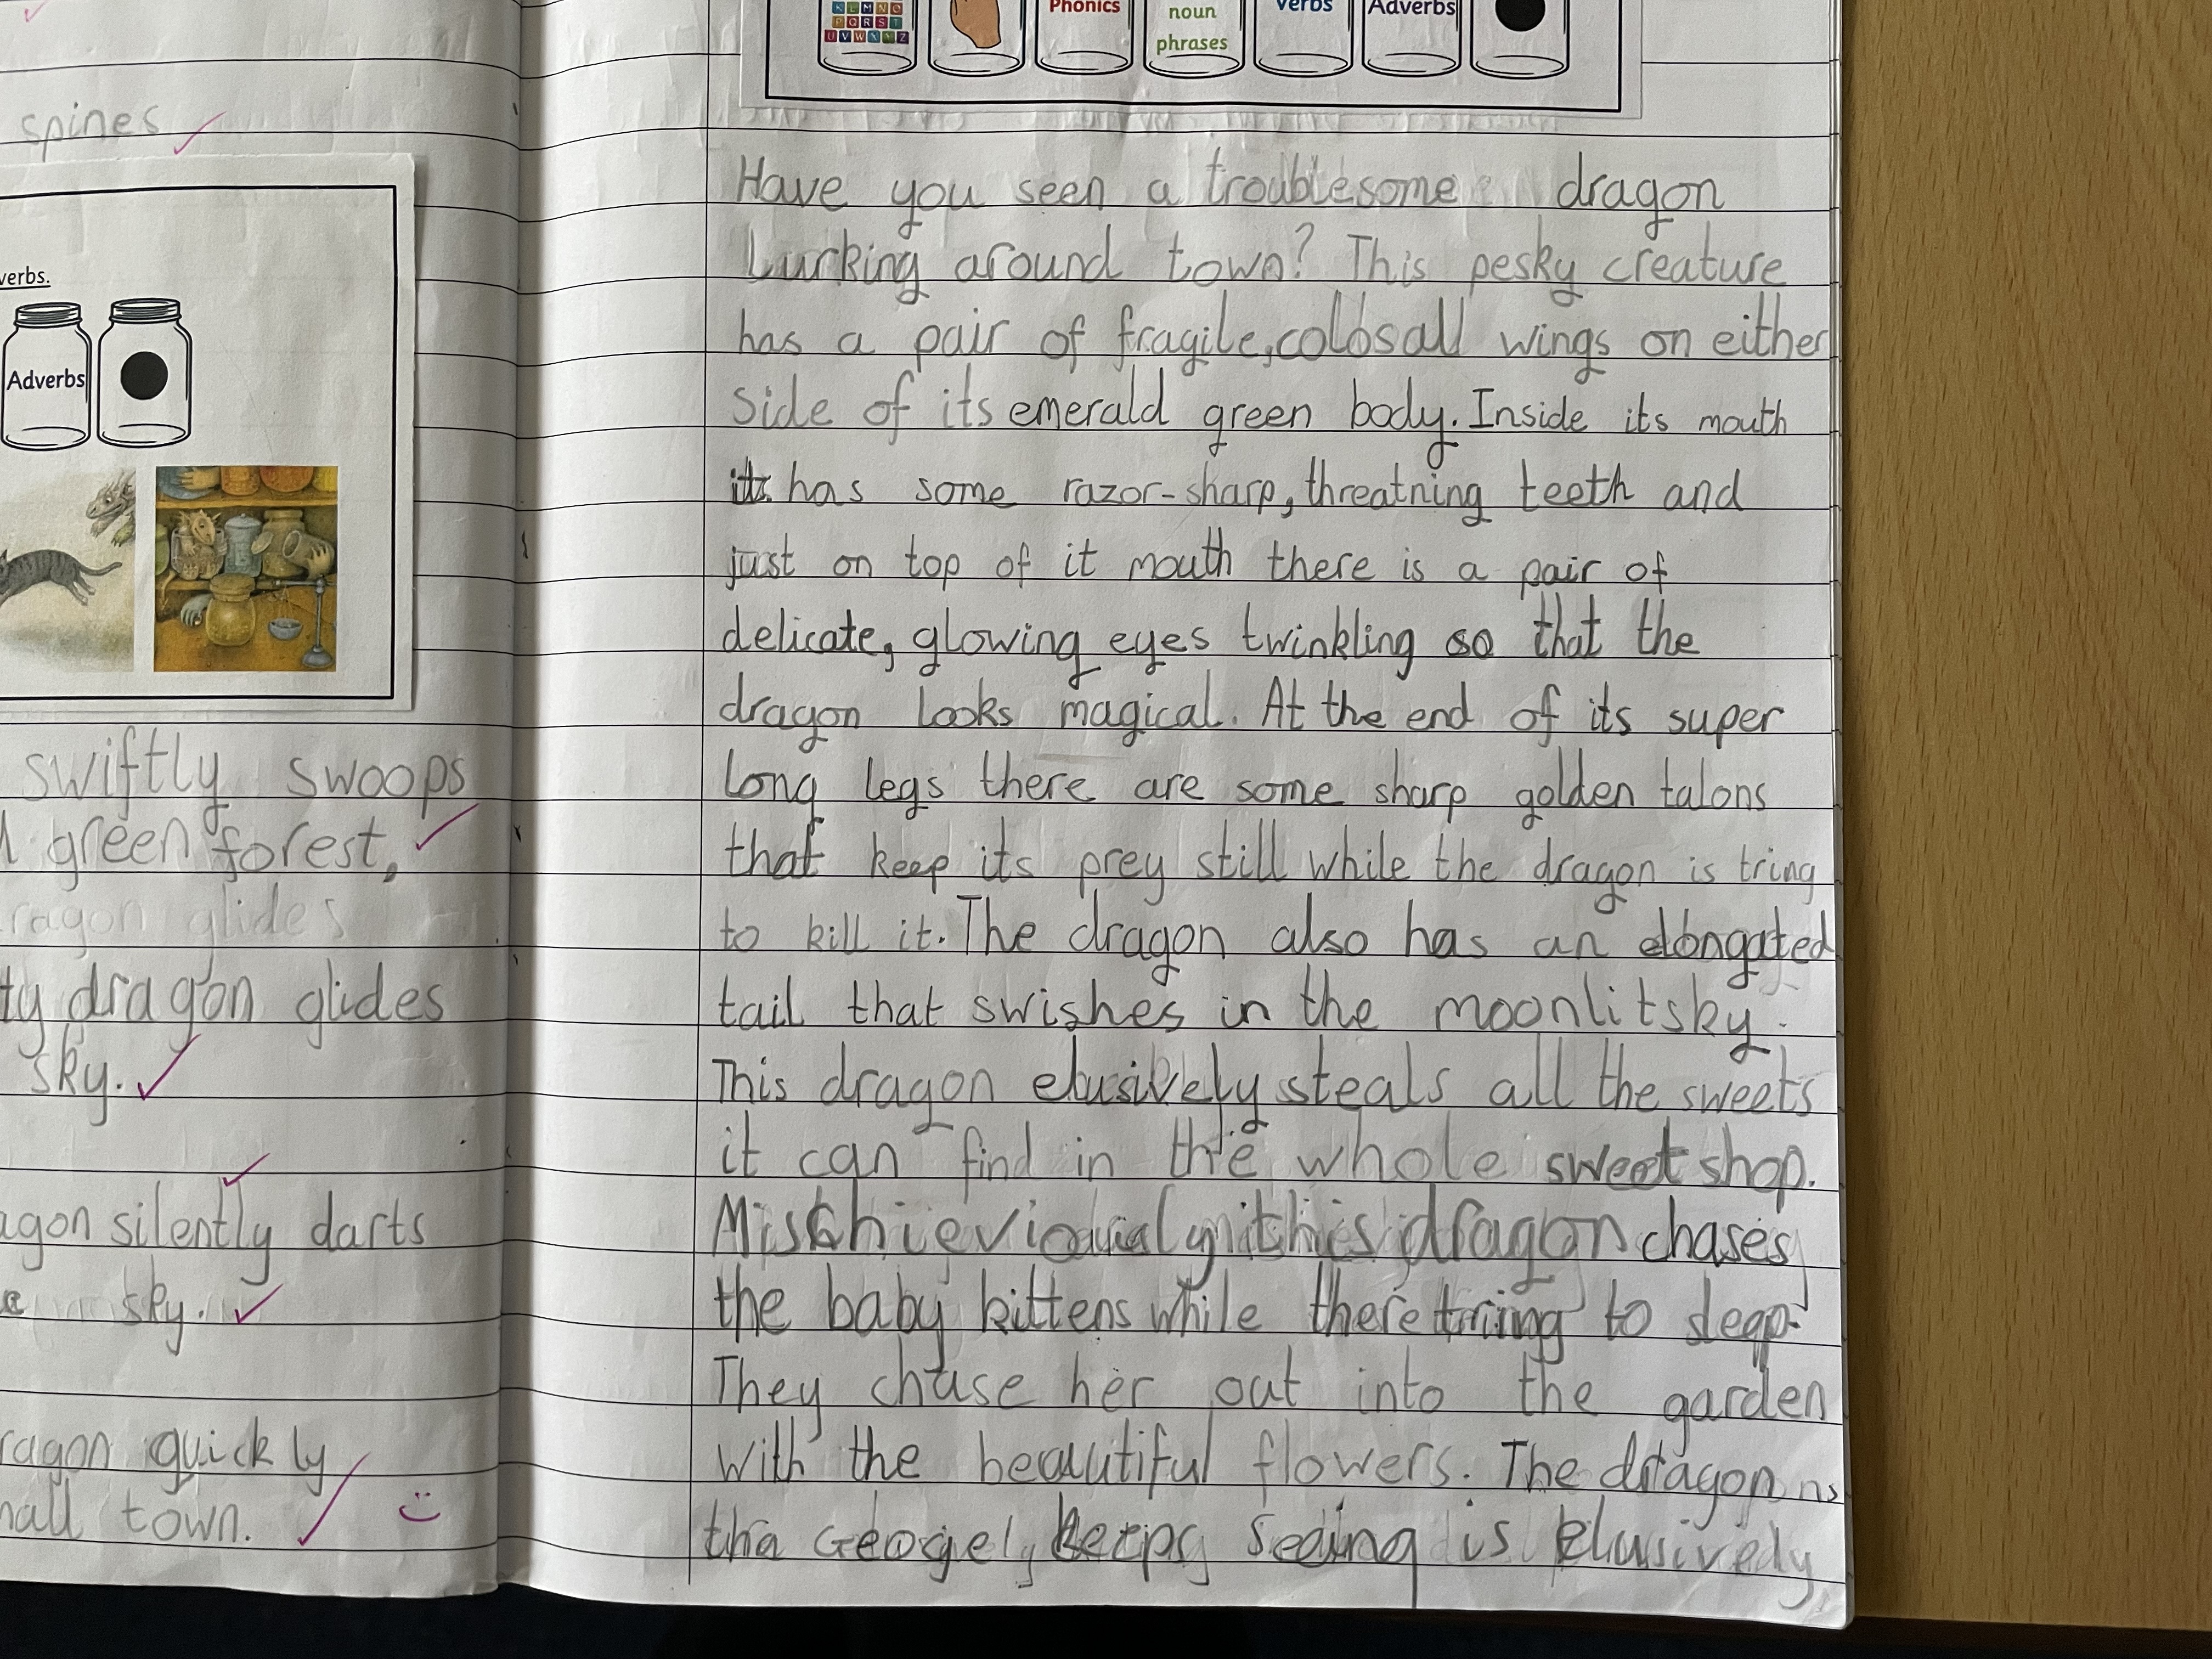 spines
verbs.
Adverbs
swiftly swoops
green forest,
ragon glides
ty dragon glides
sky.
agon silently darts
sky.
ragon quickly
mall town.
K L M N O
P Q R S T
U V W X Y Z
Phonics
noun
phrases
verbs
Adverbs
Have you seen a troublesome dragon
Lurking around town? This pesky creature
has a pair of fragile, colosall wings on either
side of its emerald green body. Inside its mouth
it has some razor-sharp, threatning teeth and
just on top of it mouth there is a pair of
delicate, glowing eyes twinkling so that the
dragon looks magical. At the end of its super
long legs there are some sharp golden talons
that keep its prey still while the dragon is tring
to kill it. The dragon also has an elongated
tail that swishes in the moonlit sky.
This dragon elusively steals all the sweets
it can find in the whole sweet shop.
this dragon chases
the baby kittens while there tring to sleep.
They chase her out into the garden
with the beautiful flowers. The dragon
keeps seeing is elusively